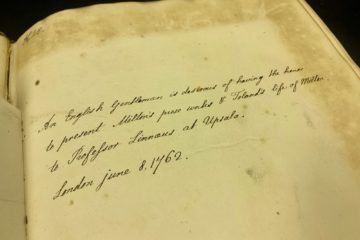 An English Gentleman is desirous of having the honor
to present Milton's prose works & Toland's life of Milton
to Professor Linnæus at Upsala.
London june 8. 1762.